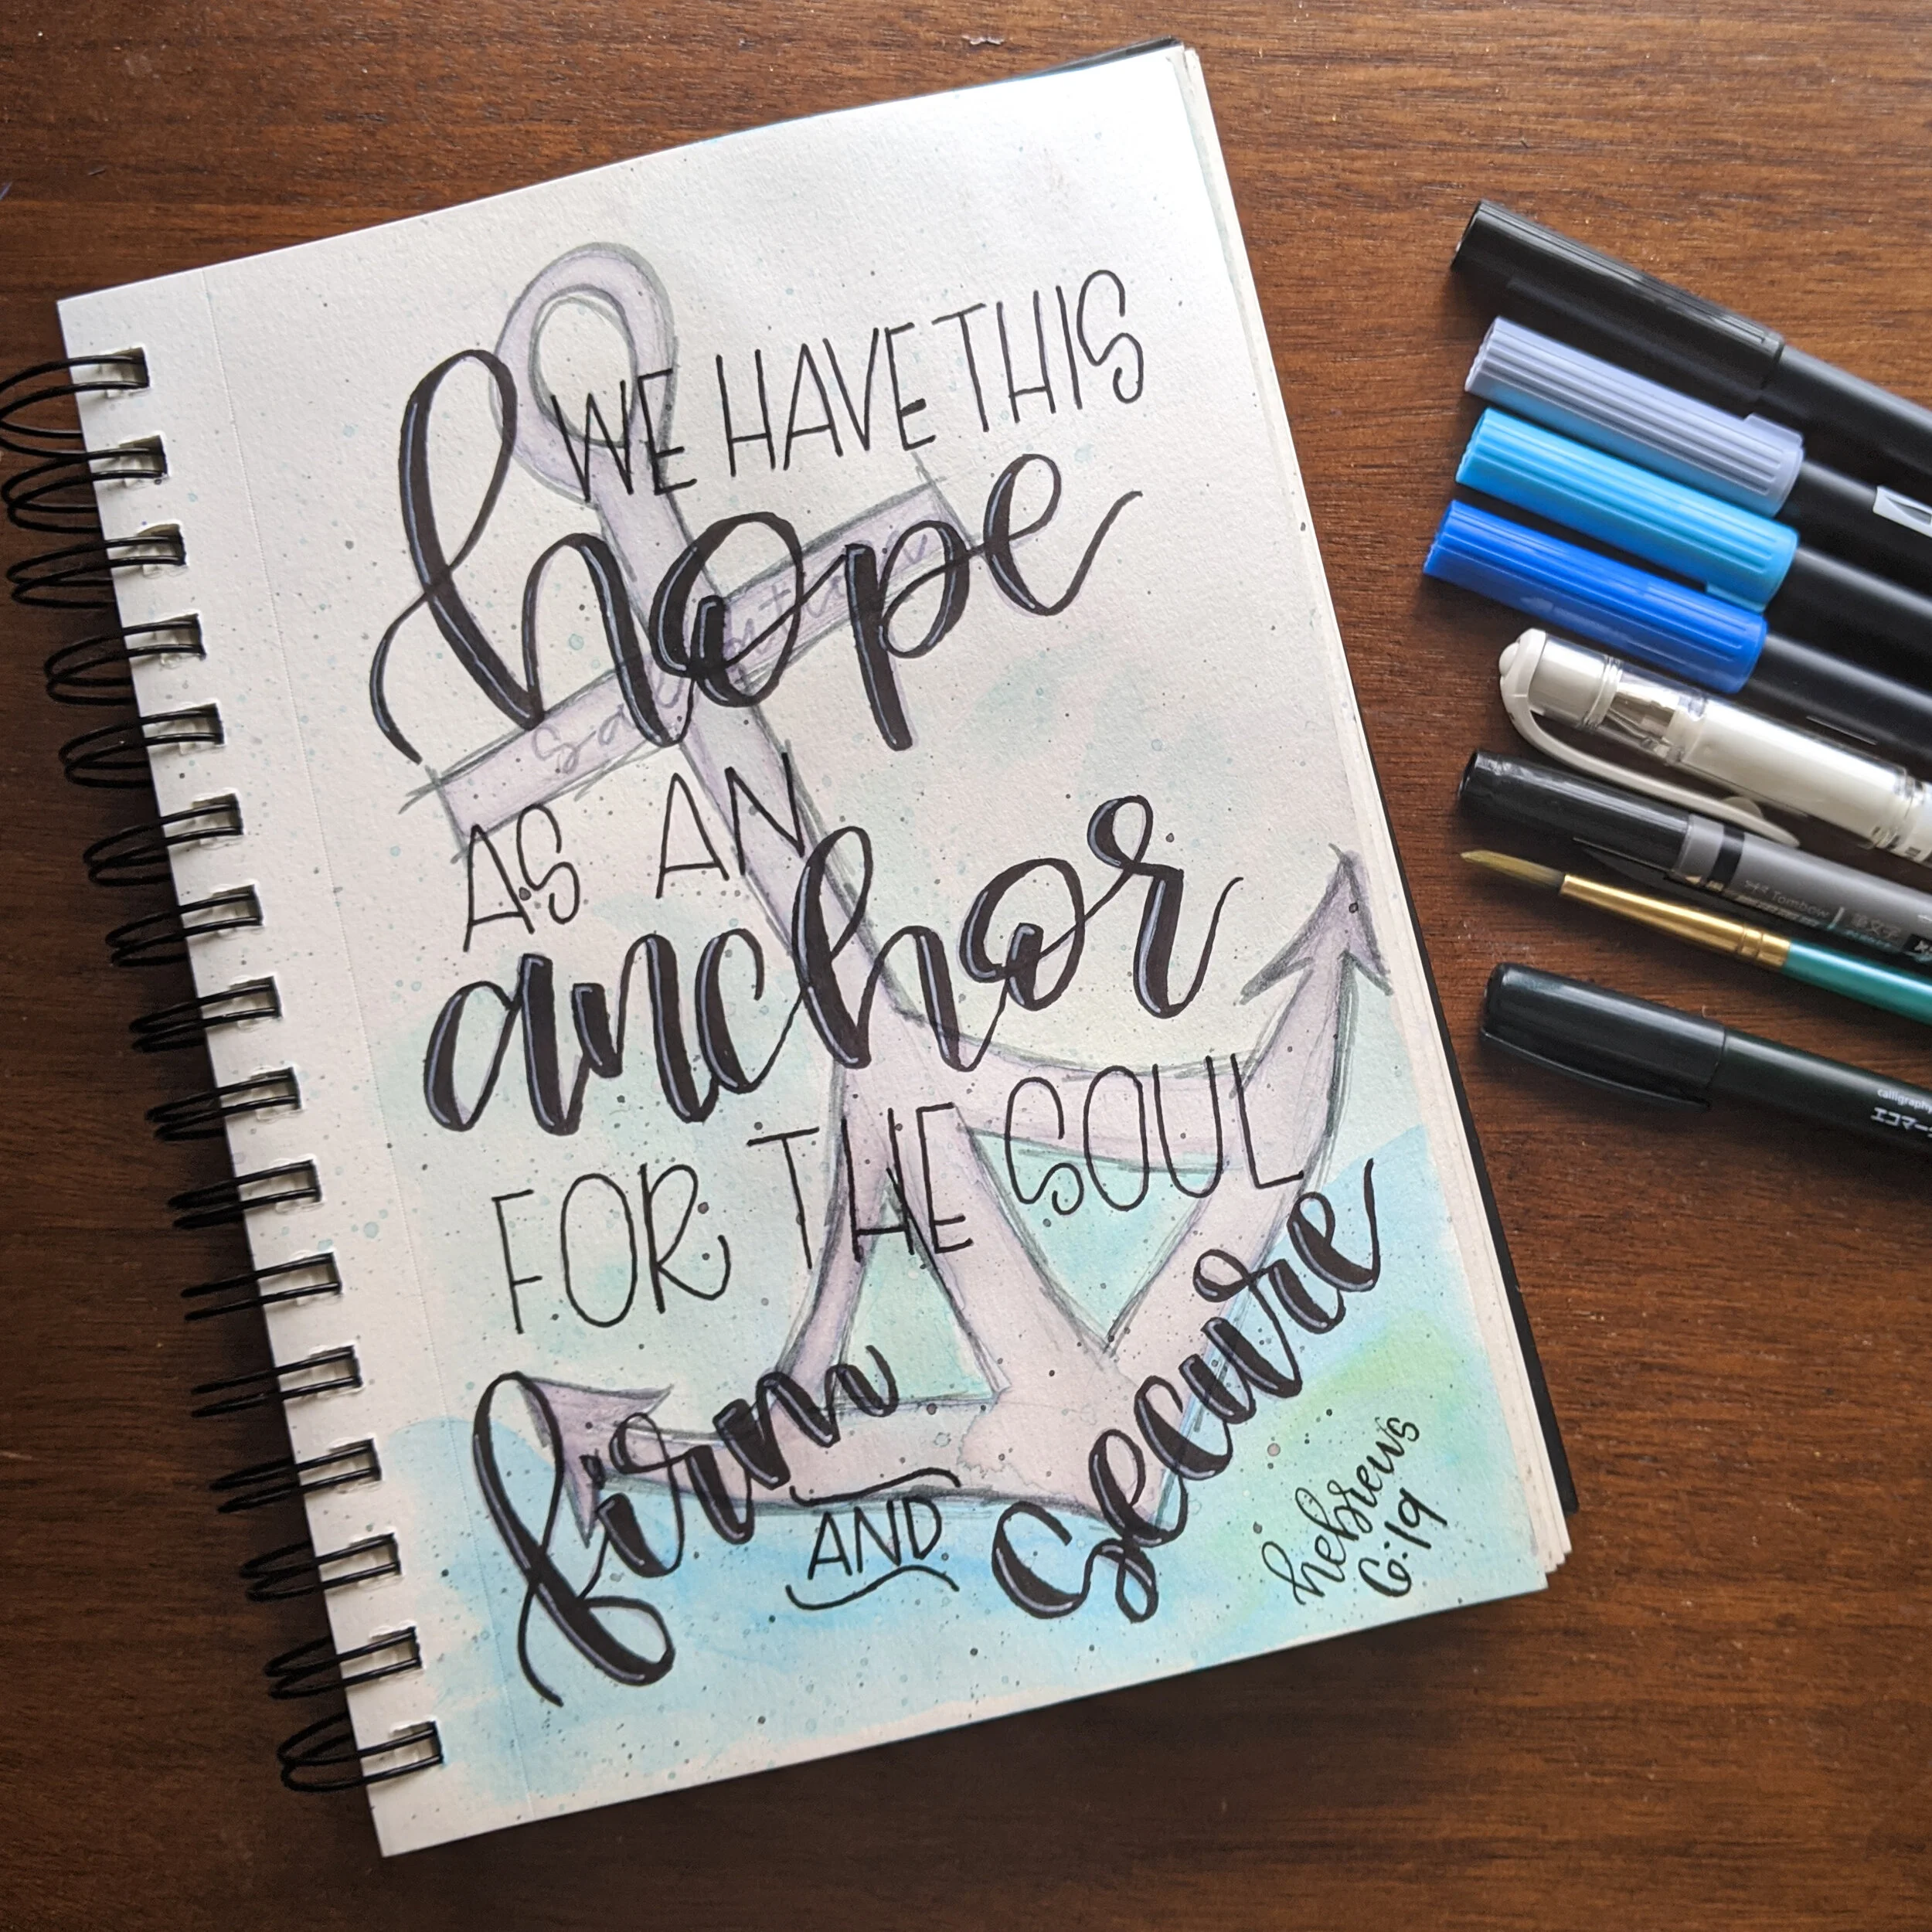 WE HAVE THIS
hope
salvation
AS AN
anchor
FOR THE SOUL
firm
AND
secure
hebrews
6:19
Tombow
calligraphy